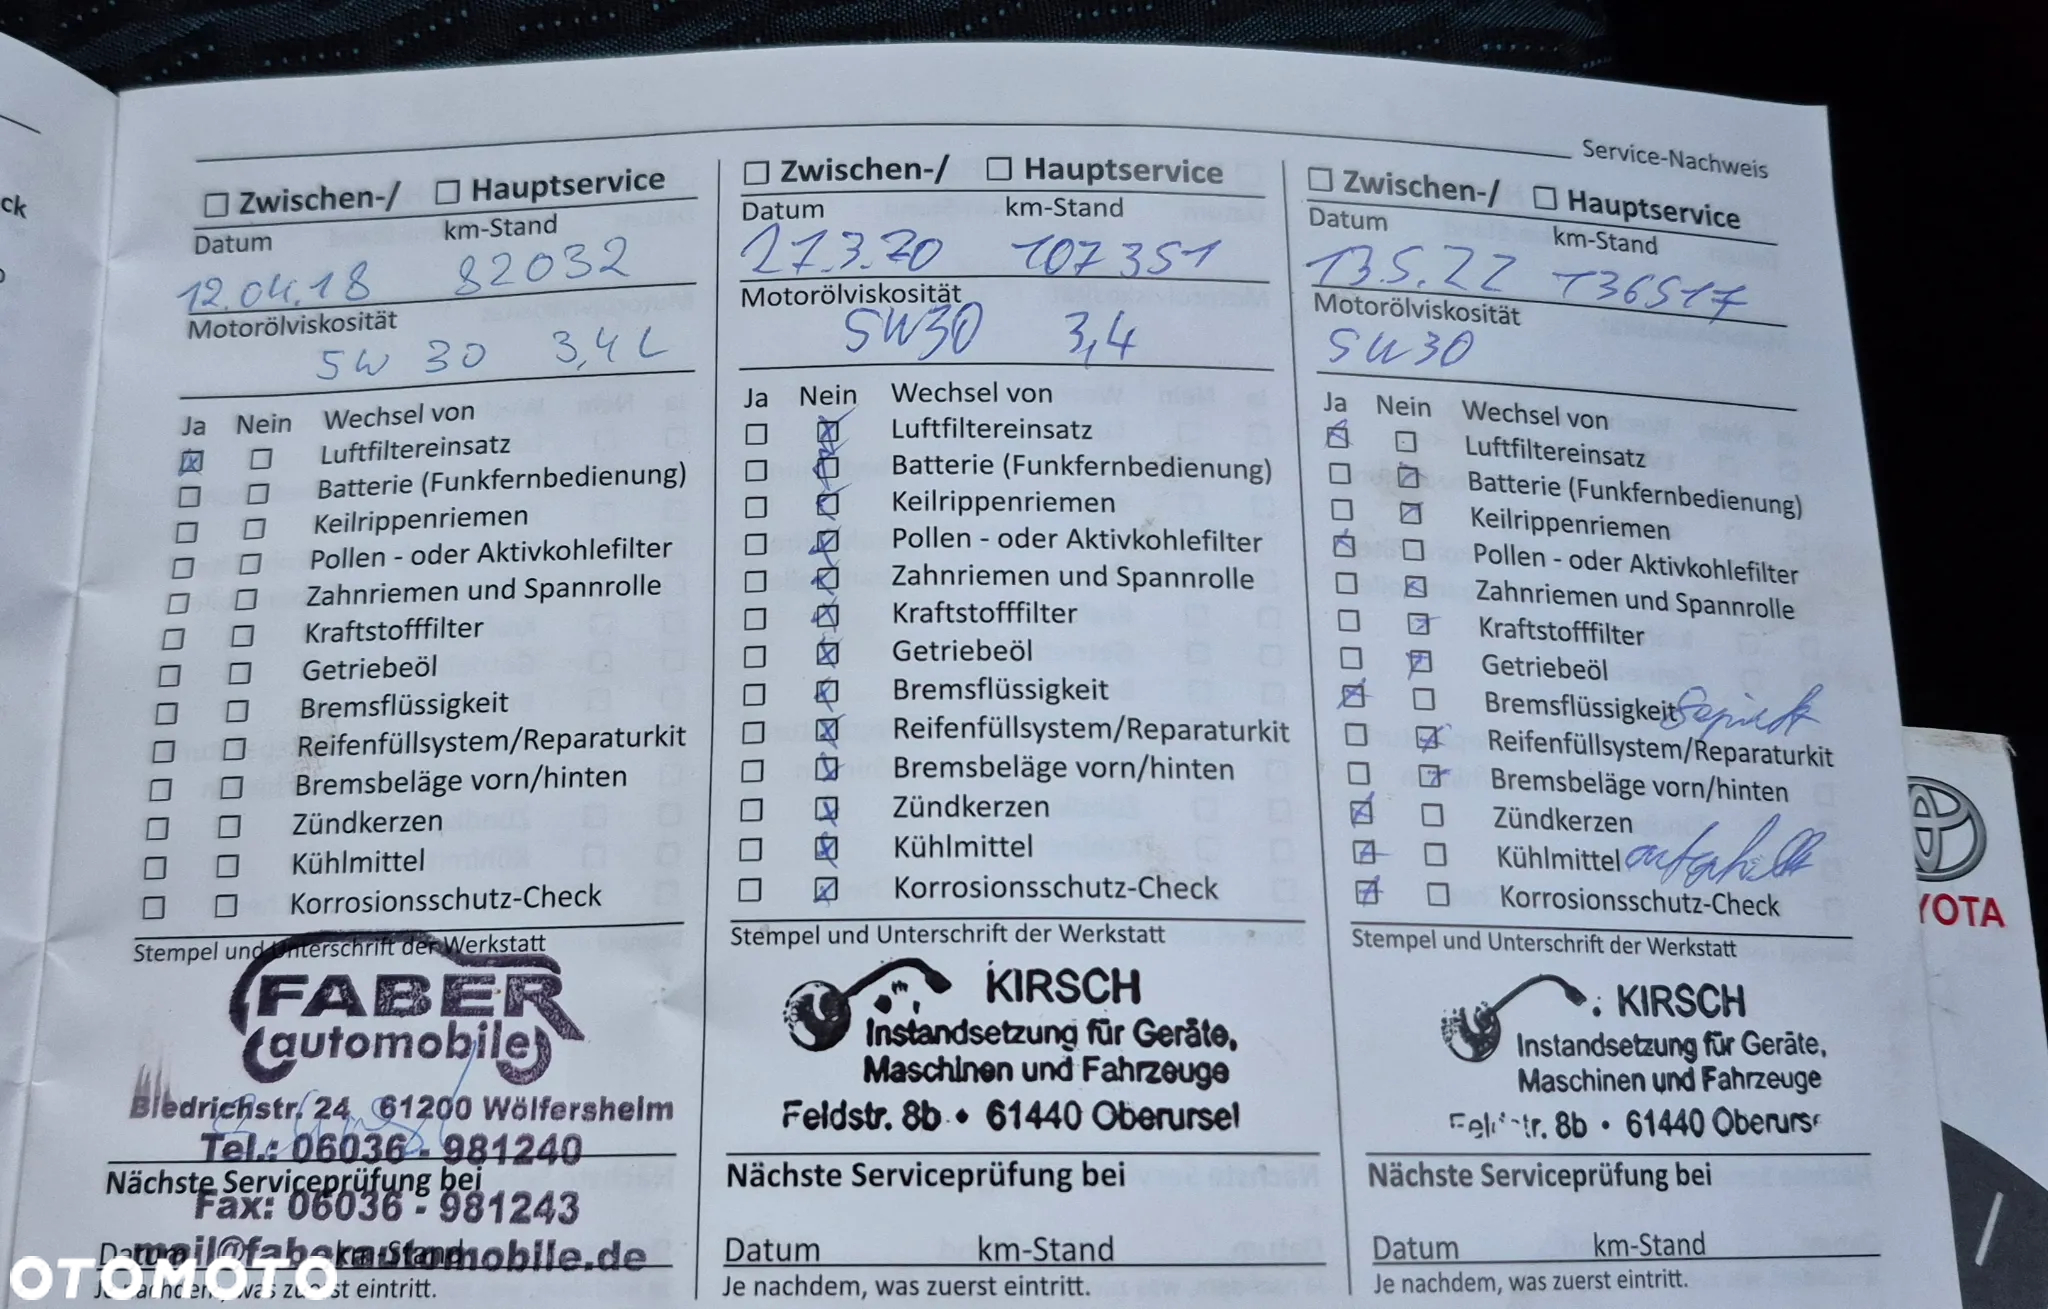 ck
Service-Nachweis
Zwischen-/ Hauptservice
Datum km-Stand
12.04.18 82032
Motorölviskosität
5W 30 3,4 L
Ja Nein Wechsel von
Luftfiltereinsatz
Batterie (Funkfernbedienung)
Keilrippenriemen
Pollen - oder Aktivkohlefilter
Zahnriemen und Spannrolle
Kraftstofffilter
Getriebeöl
Bremsflüssigkeit
Reifenfüllsystem/Reparaturkit
Bremsbeläge vorn/hinten
Zündkerzen
Kühlmittel
Korrosionsschutz-Check
Stempel und Unterschrift der Werkstatt
FABER
automobile
Biedrichstr. 24 61200 Wölfersheim
Tel.: 06036 - 981240
Nächste Serviceprüfung bei
Fax: 06036 - 981243
Datum km-Stand
mail@faberautomobile.de
Je nachdem, was zuerst eintritt.
Zwischen-/ Hauptservice
Datum km-Stand
27.3.20 107351
Motorölviskosität
5W30 3,4
Ja Nein Wechsel von
Luftfiltereinsatz
Batterie (Funkfernbedienung)
Keilrippenriemen
Pollen - oder Aktivkohlefilter
Zahnriemen und Spannrolle
Kraftstofffilter
Getriebeöl
Bremsflüssigkeit
Reifenfüllsystem/Reparaturkit
Bremsbeläge vorn/hinten
Zündkerzen
Kühlmittel
Korrosionsschutz-Check
Stempel und Unterschrift der Werkstatt
KIRSCH
Instandsetzung für Geräte,
Maschinen und Fahrzeuge
Feldstr. 8b • 61440 Oberursel
Nächste Serviceprüfung bei
Datum km-Stand
Je nachdem, was zuerst eintritt.
Zwischen-/ Hauptservice
Datum km-Stand
13.5.22 136517
Motorölviskosität
5W30
Ja Nein Wechsel von
Luftfiltereinsatz
Batterie (Funkfernbedienung)
Keilrippenriemen
Pollen - oder Aktivkohlefilter
Zahnriemen und Spannrolle
Kraftstofffilter
Getriebeöl
Bremsflüssigkeit
Reifenfüllsystem/Reparaturkit
Bremsbeläge vorn/hinten
Zündkerzen
Kühlmittel
Korrosionsschutz-Check
Stempel und Unterschrift der Werkstatt
KIRSCH
Instandsetzung für Geräte,
Maschinen und Fahrzeuge
Feldstr. 8b • 61440 Oberurse
Nächste Serviceprüfung bei
Datum km-Stand
Je nachdem, was zuerst eintritt.
YOTA
OTOMOTO